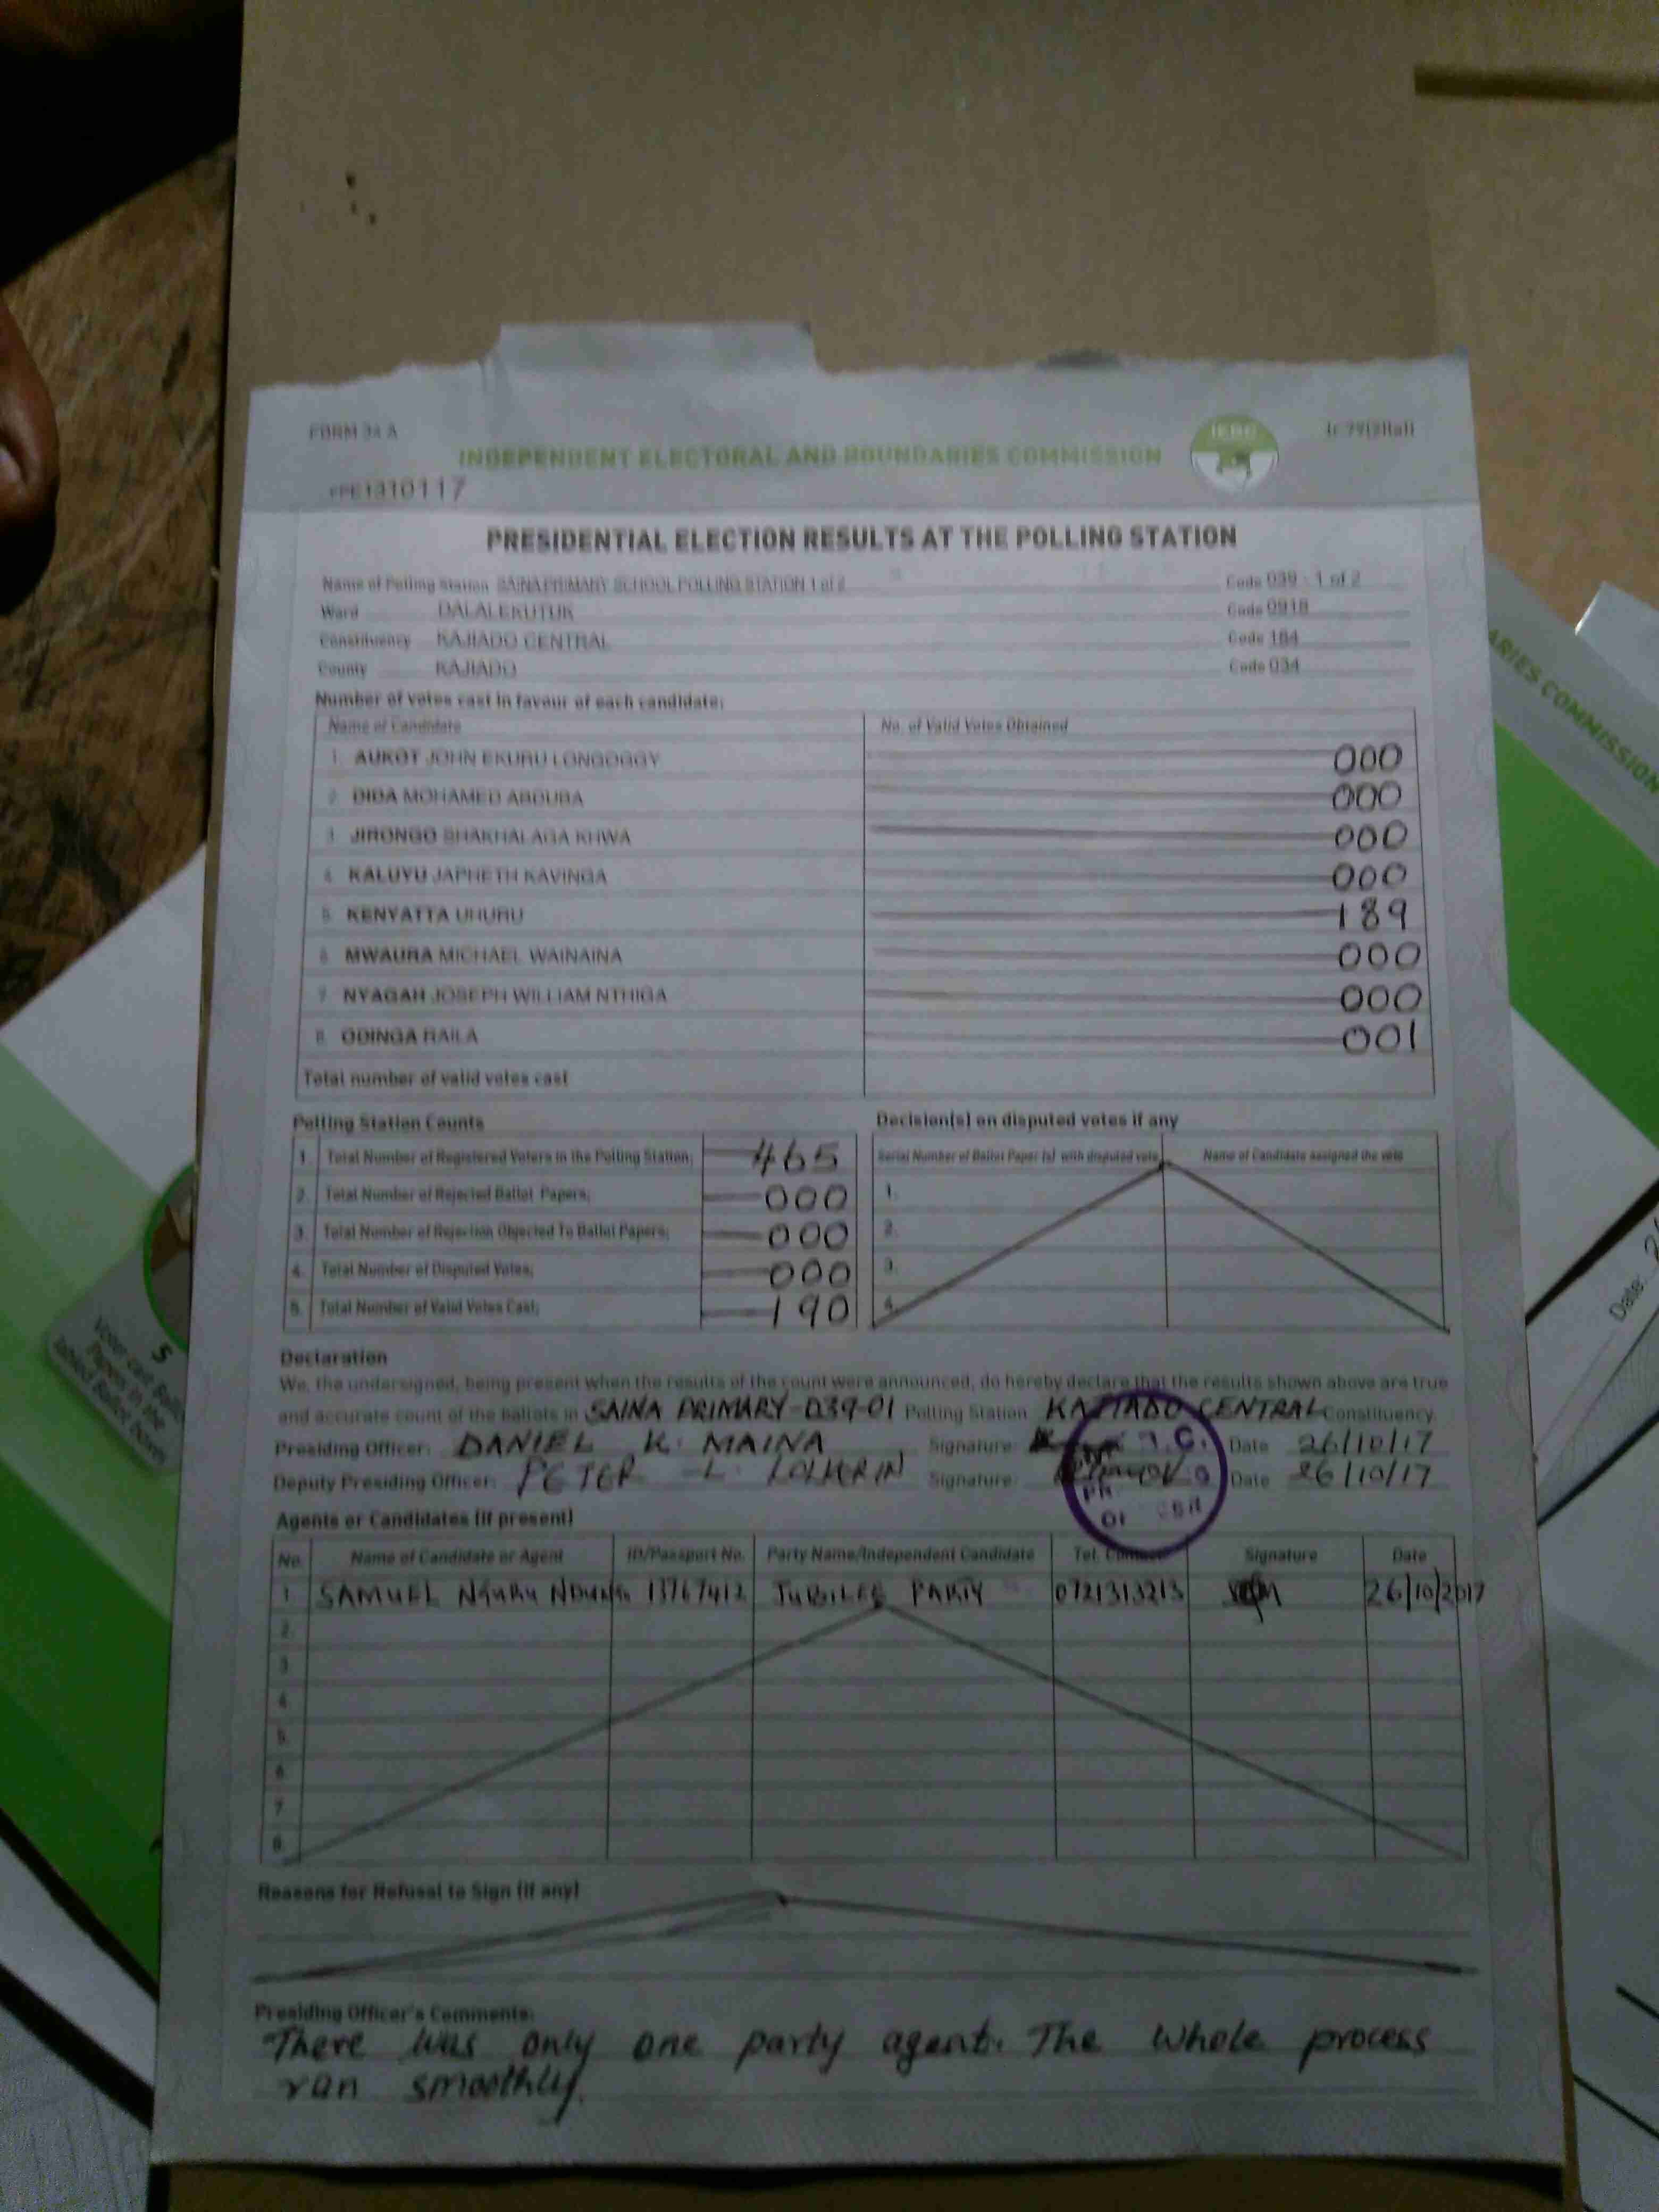 FORM 34 A
INDEPENDENT ELECTORAL AND BOUNDARIES COMMISSION
IEBC
PRESIDENTIAL ELECTION RESULTS AT THE POLLING STATION
Name of Polling Station SAINA PRIMARY SCHOOL POLLING STATION 1 of 2 Code 039 - 1 of 2
Ward DALALEKUTUK Code 0918
Constituency KAJIADO CENTRAL Code 184
County KAJIADO Code 034
Number of votes cast in favour of each candidate:
Name of Candidate No. of Valid Votes Obtained
1. AUKOT JOHN EKURU LONGOGGY 000
2. DIDA MOHAMED ABDUBA 000
3. JIRONGO SHAKHALAGA KHWA 000
4. KALUYU JAPHETH KAVINGA 000
5. KENYATTA UHURU 189
6. MWAURA MICHAEL WAINAINA 000
7. NYAGAH JOSEPH WILLIAM NTHIGA 000
8. ODINGA RAILA 001
Total number of valid votes cast
Polling Station Counts
1. Total Number of Registered Voters in the Polling Station; 465
2. Total Number of Rejected Ballot Papers; 000
3. Total Number of Rejection Objected To Ballot Papers; 000
4. Total Number of Disputed Votes; 000
5. Total Number of Valid Votes Cast; 190
Decision(s) on disputed votes if any
Serial Number of Ballot Paper (s) with disputed vote Name of Candidate assigned the vote
1.
2.
3.
4.
Declaration
We, the undersigned, being present when the results of the count were announced, do hereby declare that the results shown above are true
and accurate count of the ballots in SAINA PRIMARY-039-01 Polling Station KAJIADO CENTRAL Constituency
Presiding Officer: DANIEL K. MAINA Signature: Date 26/10/17
Deputy Presiding Officer: PETER L. Signature: Date 26/10/17
Agents or Candidates (if present)
No. Name of Candidate or Agent ID/Passport No. Party Name/Independent Candidate Tel. Contact Signature Date
1 SAMUEL 13767412 JUBILEE PARTY 0721313213 26/10/2017
2.
3
4
5
6
7
8
Reasons for Refusal to Sign (if any)
Presiding Officer's Comments:
There was only one party agent. The whole process
ran smoothly.
ARIES COMMISSION
Date:
5
Voter cast Ballot
Papers in the
labled Ballot boxes